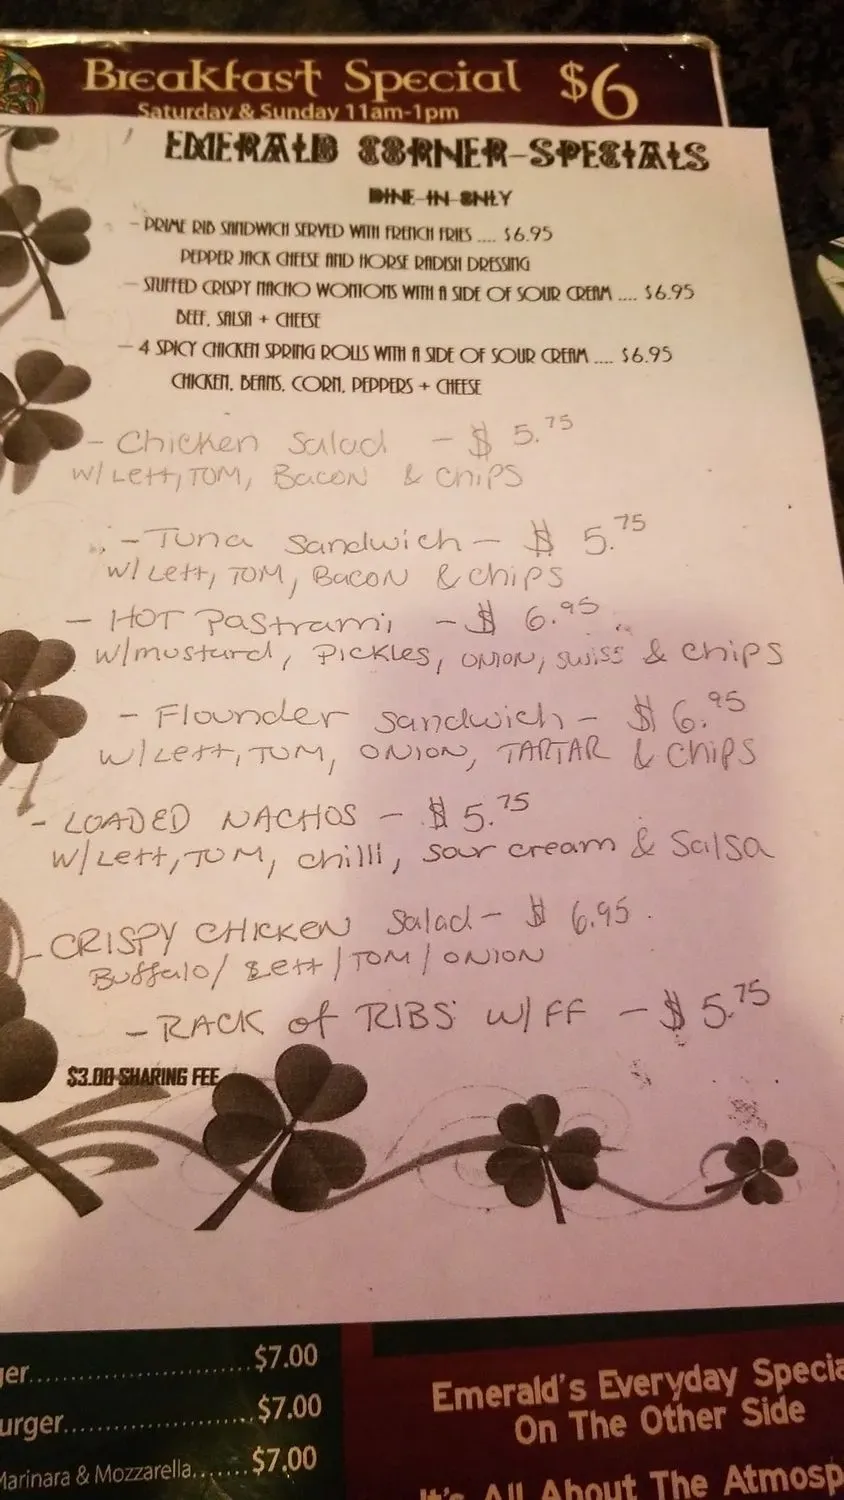 Breakfast Special $6
Saturday & Sunday 11am-1pm
EMERALD CORNER SPECIALS
DINE IN ONLY
- PRIME RIB SANDWICH SERVED WITH FRENCH FRIES .... $6.95
PEPPER JACK CHEESE AND HORSE RADISH DRESSING
- STUFFED CRISPY NACHO WONTONS WITH A SIDE OF SOUR CREAM .... $6.95
BEEF, SALSA + CHEESE
- 4 SPICY CHICKEN SPRING ROLLS WITH A SIDE OF SOUR CREAM .... $6.95
CHICKEN, BEANS, CORN, PEPPERS + CHEESE
- Chicken Salad - $5.75
W/ Lett, TOM, Bacon & chips
- Tuna Sandwich - $5.75
W/ Lett, TOM, Bacon & chips
- HOT Pastrami - $6.95
W/mustard, Pickles, ONION, Swiss & chips
- Flounder Sandwich - $6.95
W/ Lett, TOM, ONION, TARTAR & chips
- LOADED NACHOS - $5.75
W/ Lett, TOM, chilli, sour cream & Salsa
- CRISPY CHICKEN Salad - $6.95
Buffalo/ Lett/TOM/ONION
- RACK of RIBS W/FF - $5.75
$3.00 SHARING FEE
ger...............................$7.00
urger...........................$7.00
Marinara & Mozzarella.......$7.00
Emerald's Everyday Specia
On The Other Side
It's All About The Atmosp